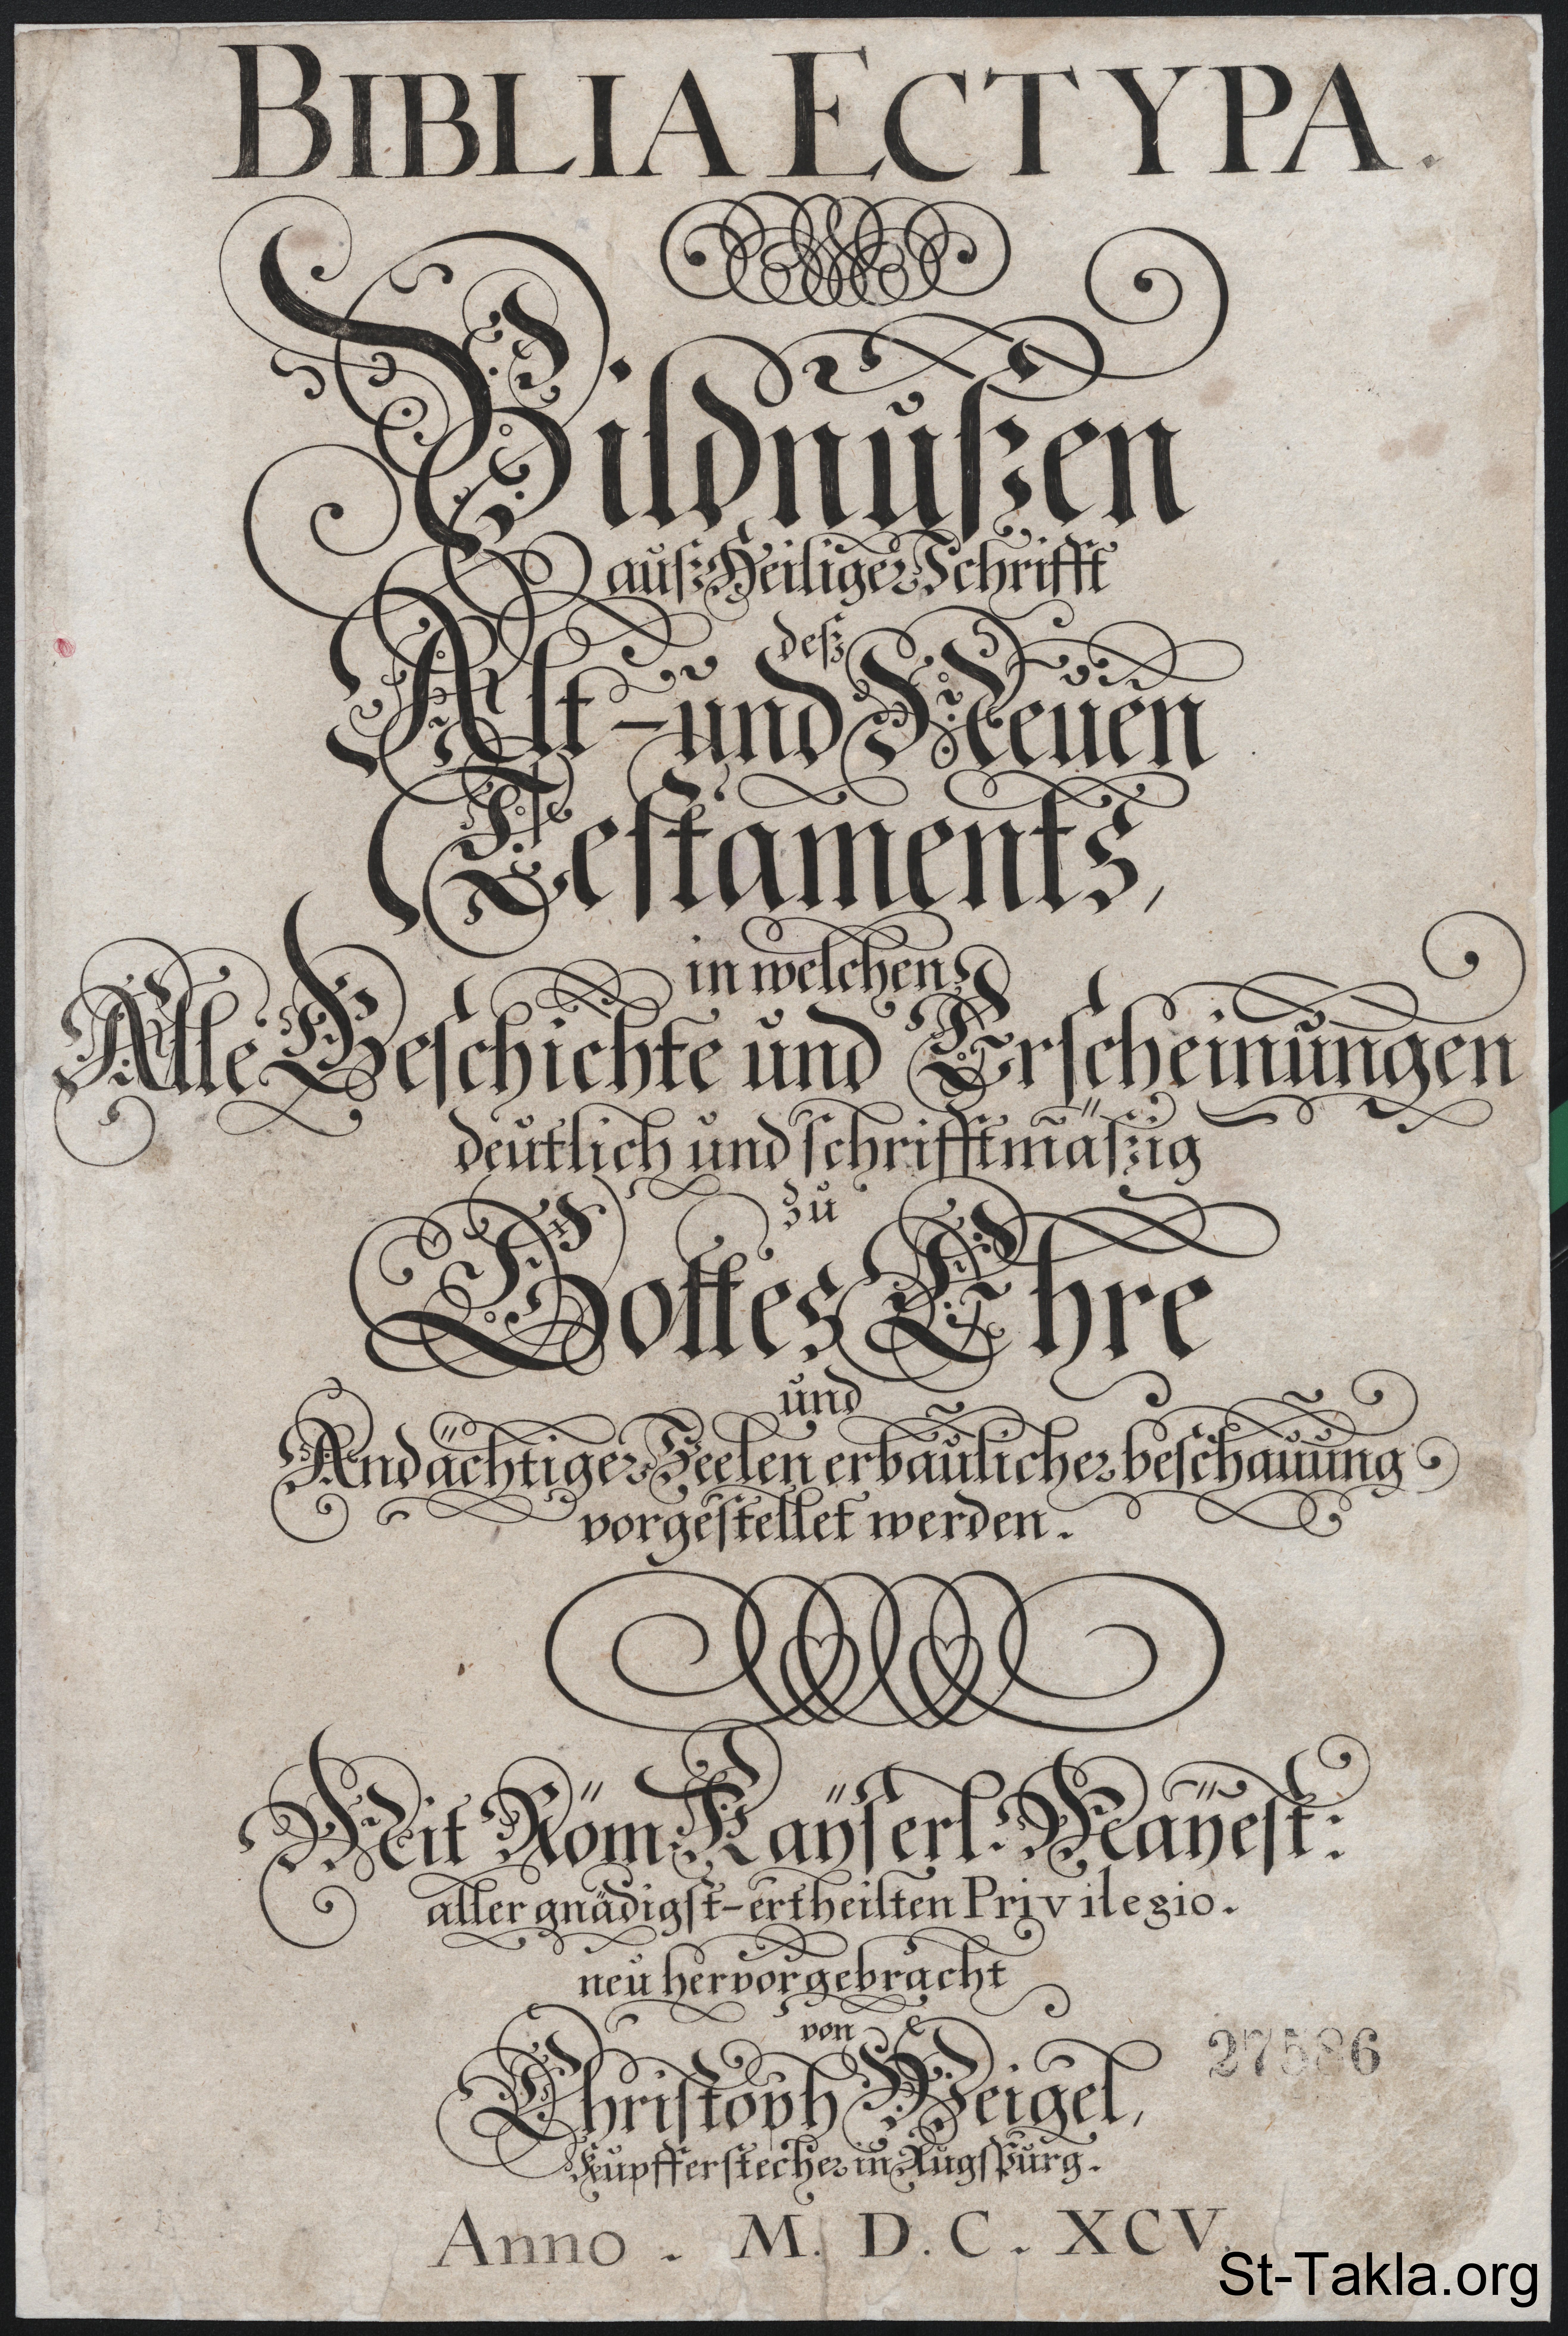 BIBLIA ECTYPA.
Bildnußen
auß Heiliger Schrifft
deß
Alt- und Neuen
Testaments,
in welchen
Alle Geschichte und Erscheinungen
deutlich und schrifftmäßig
zu
Gottes Ehre
und
Andächtiger Seelen erbaulicher beschauung
vorgestellet werden.
Mit Röm. Kaÿserl. Maÿest:
aller gnädigst-ertheilten Privilegio.
neu hervorgebracht
von
Christoph Weigel,
Kupfferstecher in Augspurg.
27586
Anno. M. D. C. XCV.
St-Takla.org